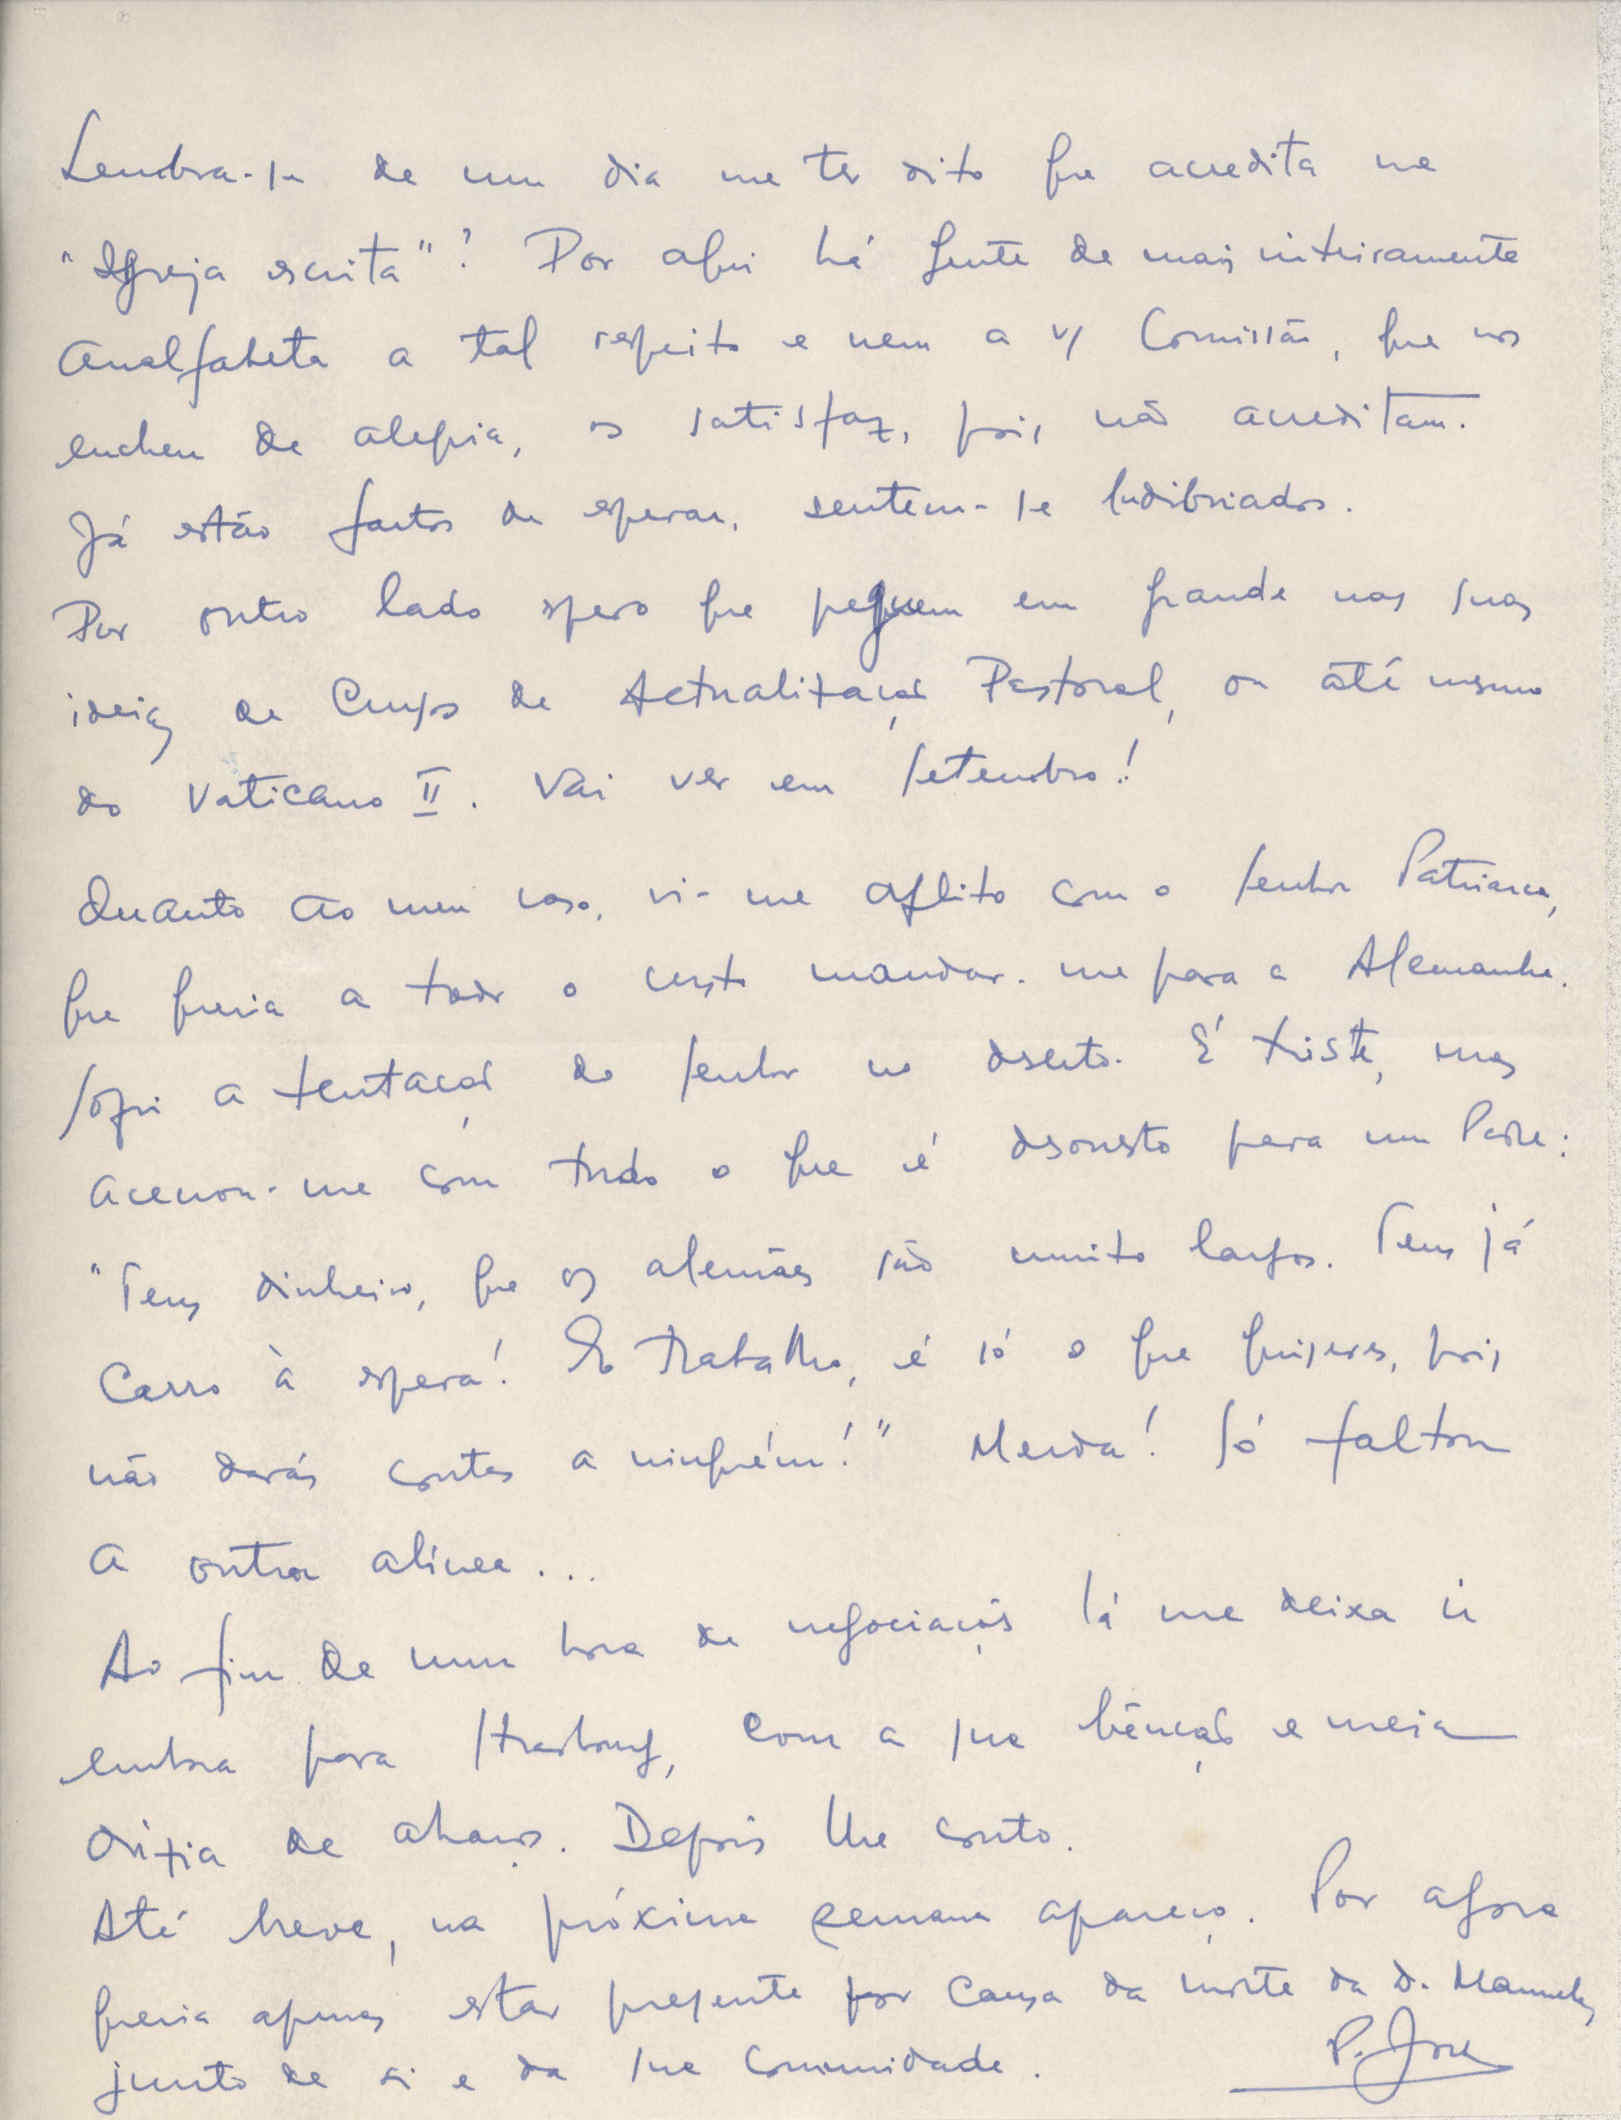 Lembra-se de um dia me ter dito que acredita na
"Igreja escrita"? Por aqui há gente de mais inteiramente
analfabeta a tal respeito e nem a v/ Comissão, que nos
encheu de alegria, os satisfaz, pois não acreditam.
Já estão fartos de esperar, sentem-se ludibriados.
Por outro lado espero que peguem em grande nas suas
ideias de Cursos de Actualização Pastoral, ou até mesmo
do Vaticano II. Vai ver em Setembro!
Quanto ao meu caso, vi-me aflito com o Senhor Patriarca,
que queria a todo o custo mandar-me para a Alemanha.
Sofri a tentação do Senhor no deserto. É triste, mas
acenou-me com tudo o que é desonesto para um Padre:
"Tens dinheiro, que os alemães são muito largos. Tens já
Carro à espera! E o trabalho, é só o que quiseres, pois
não darás contas a ninguém!" Merda! Só faltou
a outra alínea...
Ao fim de uma hora de negociações lá me deixa ir
embora para Strasbourg, com a sua bênção e meia
dúzia de abraços. Depois lhe conto.
Até breve, na próxima semana apareço. Por agora
queria apenas estar presente por causa da morte da D. Manuela,
junto de si e da sua comunidade.
P. José